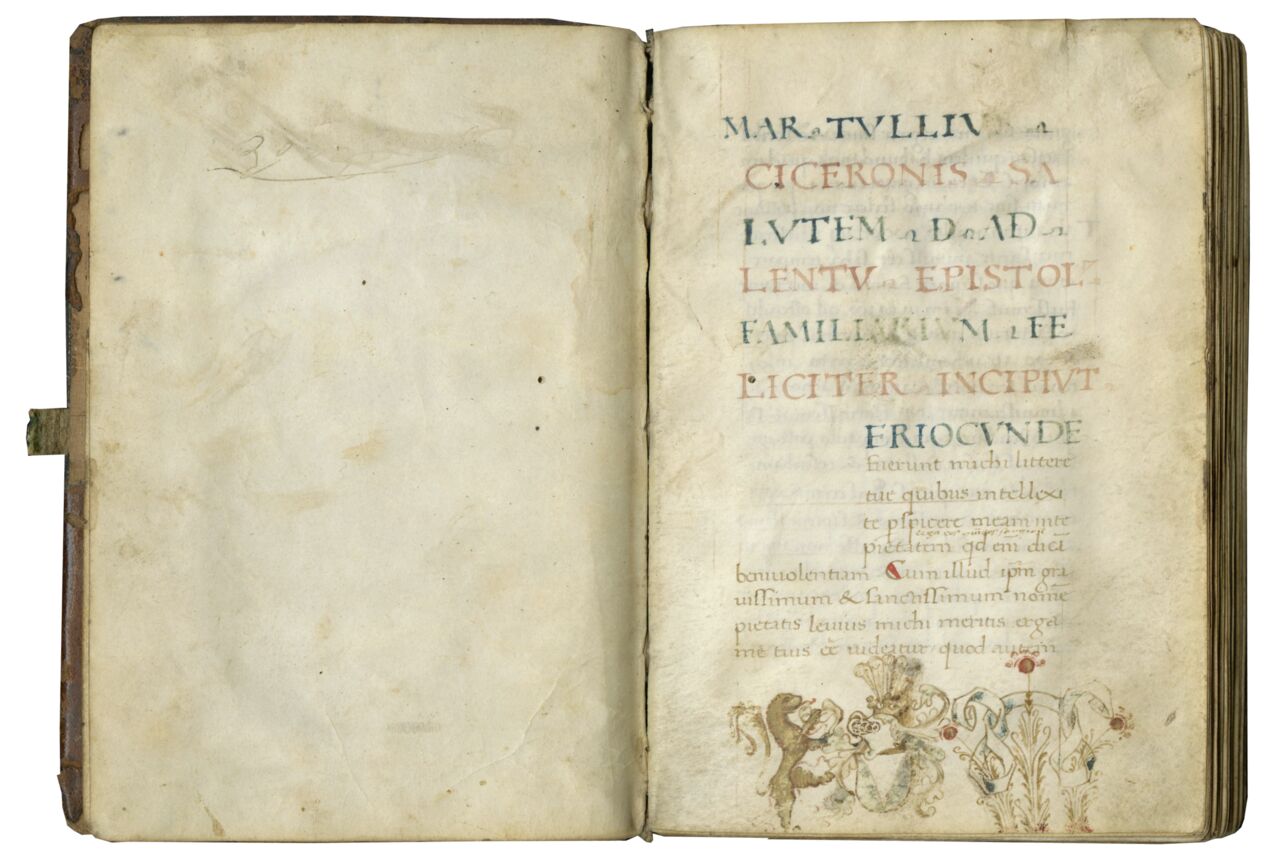 MAR TVLLIV
CICERONIS SA
LVTEM D AD
LENTV EPISTOL
FAMILIARIVM FE
LICITER INCIPIVT
ERIOCVNDE
fuerunt michi littere
tue quibus intellexi
te pspicere meam inte
pietatem qd eni dico
benivolentiam Cum illud ipm gra
vissimum & sanctissimum nome
pietatis levius michi meritis erga
me tuis ee videatur quod autem